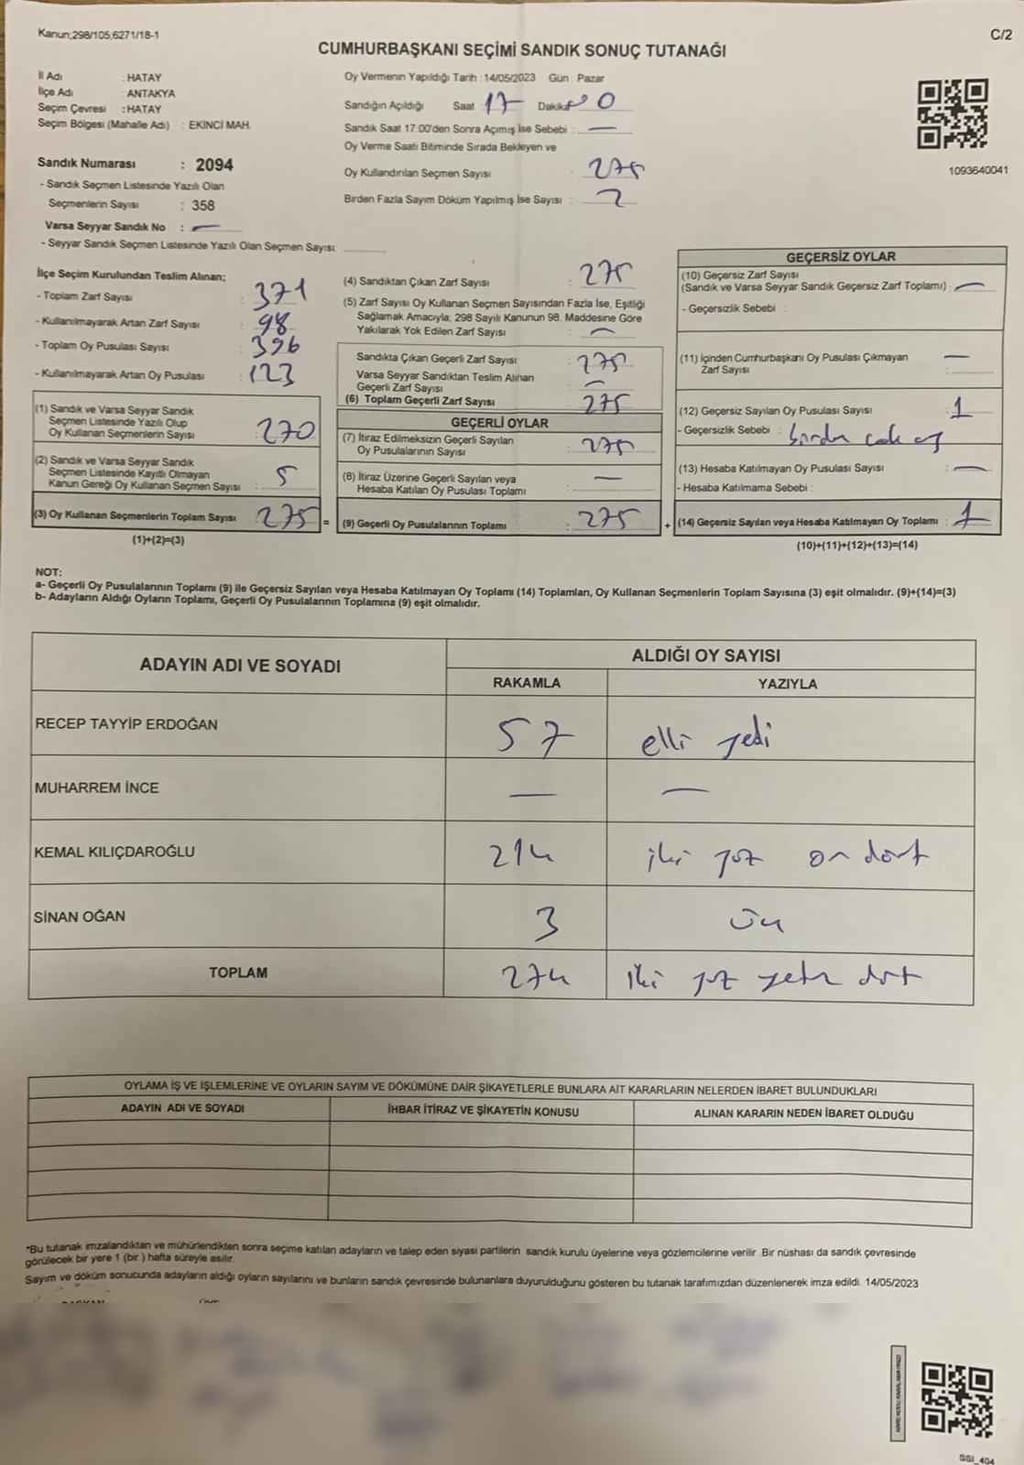 Kanun;298/105,6271/18-1
C/2
CUMHURBAŞKANI SEÇİMİ SANDIK SONUÇ TUTANAĞI
İl Adı : HATAY
İlçe Adı : ANTAKYA
Seçim Çevresi : HATAY
Seçim Bölgesi (Mahalle Adı) : EKİNCİ MAH.
Sandık Numarası : 2094
- Sandık Seçmen Listesinde Yazılı Olan
Seçmenlerin Sayısı : 358
Varsa Seyyar Sandık No : —
- Seyyar Sandık Seçmen Listesinde Yazılı Olan Seçmen Sayısı:
Oy Vermenin Yapıldığı Tarih : 14/05/2023 Gün : Pazar
Sandığın Açıldığı Saat 17 Dakika 0
Sandık Saat 17:00'den Sonra Açımış İse Sebebi : —
Oy Verme Saati Bitiminde Sırada Bekleyen ve
Oy Kullandırılan Seçmen Sayısı : 275
Birden Fazla Sayım Döküm Yapılmış İse Sayısı :
1093640041
İlçe Seçim Kurulundan Teslim Alınan;
- Toplam Zarf Sayısı : 371
- Kullanılmayarak Artan Zarf Sayısı : 98
- Toplam Oy Pusulası Sayısı : 396
- Kullanılmayarak Artan Oy Pusulası : 123
(1) Sandık ve Varsa Seyyar Sandık
Seçmen Listesinde Yazılı Olup
Oy Kullanan Seçmenlerin Sayısı 270
(2) Sandık ve Varsa Seyyar Sandık
Seçmen Listesinde Kayıtlı Olmayan
Kanun Gereği Oy Kullanan Seçmen Sayısı : 5
(3) Oy Kullanan Seçmenlerin Toplam Sayısı : 275 =
(1)+(2)=(3)
(4) Sandıktan Çıkan Zarf Sayısı : 275
(5) Zarf Sayısı Oy Kullanan Seçmen Sayısından Fazla İse, Eşitliği
Sağlamak Amacıyla; 298 Sayılı Kanunun 98. Maddesine Göre
Yakılarak Yok Edilen Zarf Sayısı : —
Sandıkta Çıkan Geçerli Zarf Sayısı : 275
Varsa Seyyar Sandıktan Teslim Alınan
Geçerli Zarf Sayısı : —
(6) Toplam Geçerli Zarf Sayısı : 275
GEÇERLİ OYLAR
(7) İtiraz Edilmeksizin Geçerli Sayılan
Oy Pusulalarının Sayısı : 275
(8) İtiraz Üzerine Geçerli Sayılan veya
Hesaba Katılan Oy Pusulası Toplamı : —
(9) Geçerli Oy Pusulalarının Toplamı : 275 +
GEÇERSİZ OYLAR
(10) Geçersiz Zarf Sayısı
(Sandık ve Varsa Seyyar Sandık Geçersiz Zarf Toplamı) : —
- Geçersizlik Sebebi :
(11) İçinden Cumhurbaşkanı Oy Pusulası Çıkmayan
Zarf Sayısı : —
(12) Geçersiz Sayılan Oy Pusulası Sayısı : 1
- Geçersizlik Sebebi : birden çok oy
(13) Hesaba Katılmayan Oy Pusulası Sayısı : —
- Hesaba Katılmama Sebebi :
(14) Geçersiz Sayılan veya Hesaba Katılmayan Oy Toplamı : 1
(10)+(11)+(12)+(13)=(14)
NOT:
a- Geçerli Oy Pusulalarının Toplamı (9) ile Geçersiz Sayılan veya Hesaba Katılmayan Oy Toplamı (14) Toplamları, Oy Kullanan Seçmenlerin Toplam Sayısına (3) eşit olmalıdır. (9)+(14)=(3)
b- Adayların Aldığı Oyların Toplamı, Geçerli Oy Pusulalarının Toplamına (9) eşit olmalıdır.
ADAYIN ADI VE SOYADI
ALDIĞI OY SAYISI
RAKAMLA YAZIYLA
RECEP TAYYİP ERDOĞAN 57 elli yedi
MUHARREM İNCE — —
KEMAL KILIÇDAROĞLU 214 iki yüz on dört
SİNAN OĞAN 3 üç
TOPLAM 274 iki yüz yetmiş dört
OYLAMA İŞ VE İŞLEMLERİNE VE OYLARIN SAYIM VE DÖKÜMÜNE DAİR ŞİKAYETLERLE BUNLARA AİT KARARLARIN NELERDEN İBARET BULUNDUKLARI
ADAYIN ADI VE SOYADI İHBAR İTİRAZ VE ŞİKAYETİN KONUSU ALINAN KARARIN NEDEN İBARET OLDUĞU
*Bu tutanak imzalandıktan ve mühürlendikten sonra seçime katılan adayların ve talep eden siyasi partilerin sandık kurulu üyelerine veya gözlemcilerine verilir. Bir nüshası da sandık çevresinde
görülecek bir yere 1 (bir) hafta süreyle asılır.
Sayım ve döküm sonucunda adayların aldığı oyların sayılarını ve bunların sandık çevresinde bulunanlara duyurulduğunu gösteren bu tutanak tarafımızdan düzenlenerek imza edildi. 14/05/2023